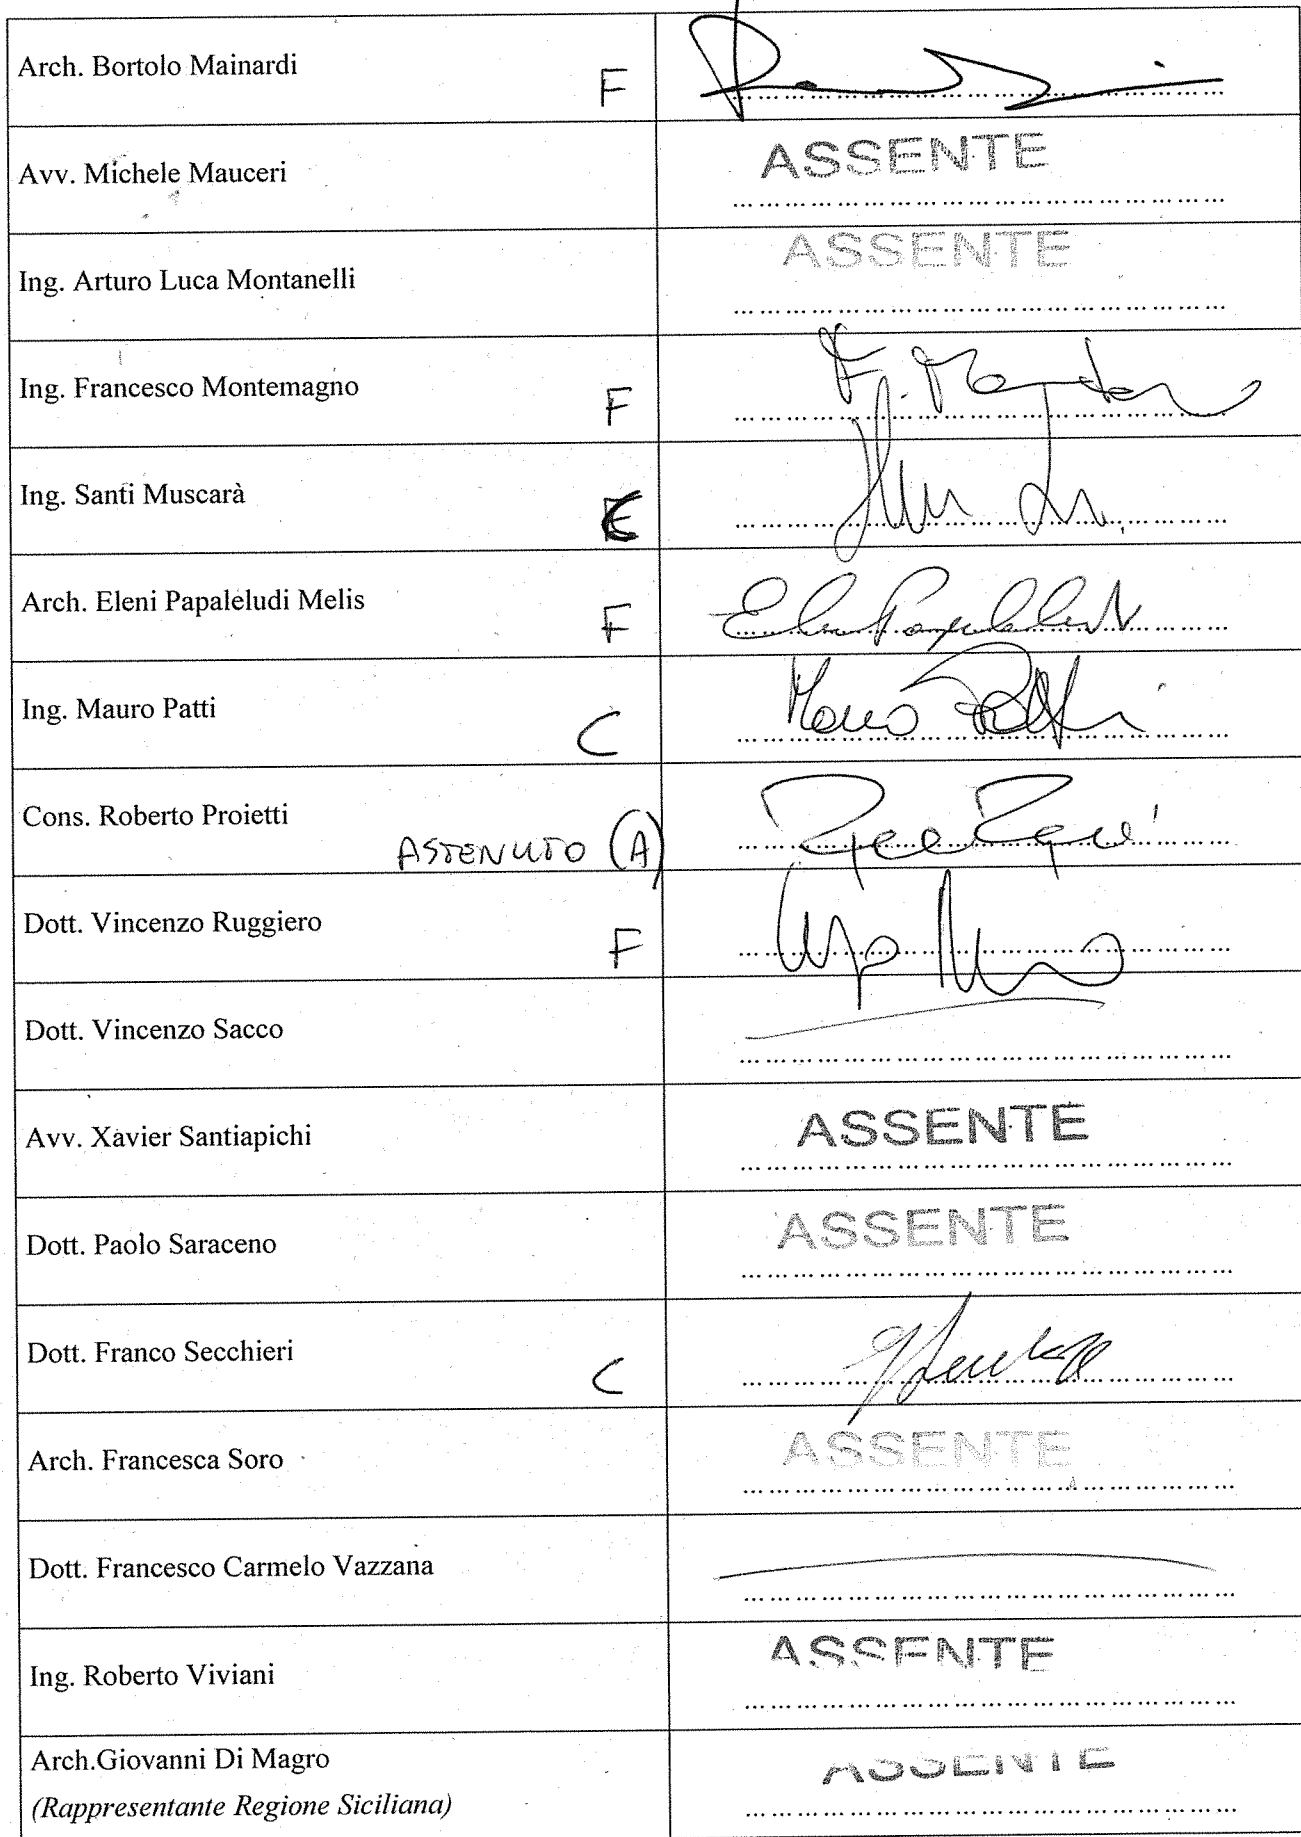 Arch. Bortolo Mainardi F
Avv. Michele Mauceri ASSENTE
Ing. Arturo Luca Montanelli ASSENTE
Ing. Francesco Montemagno F
Ing. Santi Muscarà
Arch. Eleni Papaleludi Melis F
Ing. Mauro Patti C Mauro Patti
Cons. Roberto Proietti ASTENUTO (A)
Dott. Vincenzo Ruggiero F
Dott. Vincenzo Sacco
Avv. Xavier Santiapichi ASSENTE
Dott. Paolo Saraceno ASSENTE
Dott. Franco Secchieri C
Arch. Francesca Soro ASSENTE
Dott. Francesco Carmelo Vazzana
Ing. Roberto Viviani ASSENTE
Arch.Giovanni Di Magro ASSENTE
(Rappresentante Regione Siciliana)